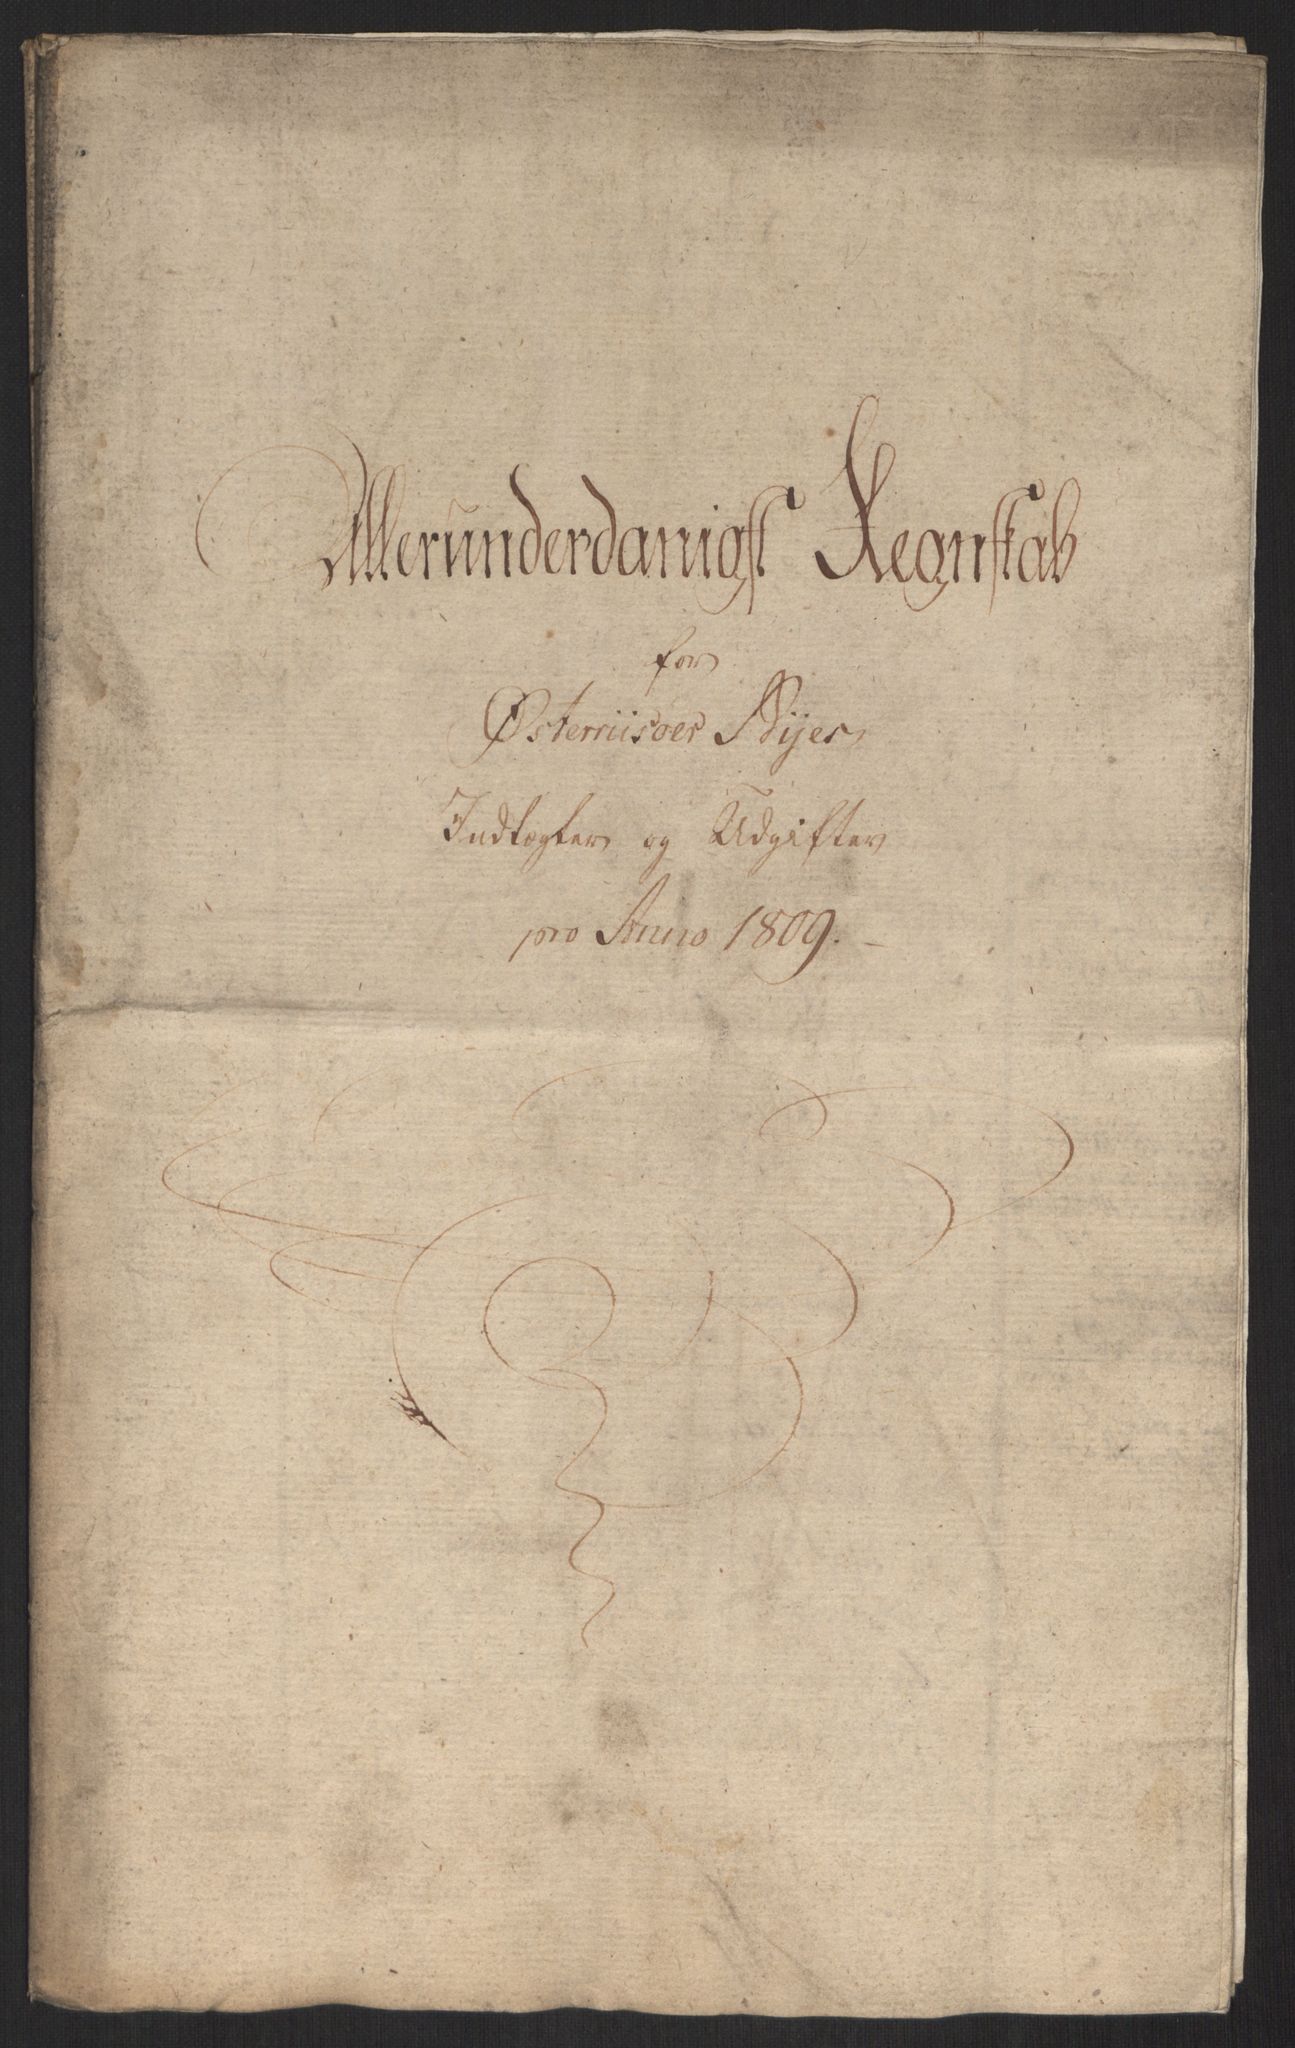 Allerunderdanigst Regnskab
for
Østerriisoer Byes
Indtægter og Udgifter
pro Anno 1809.